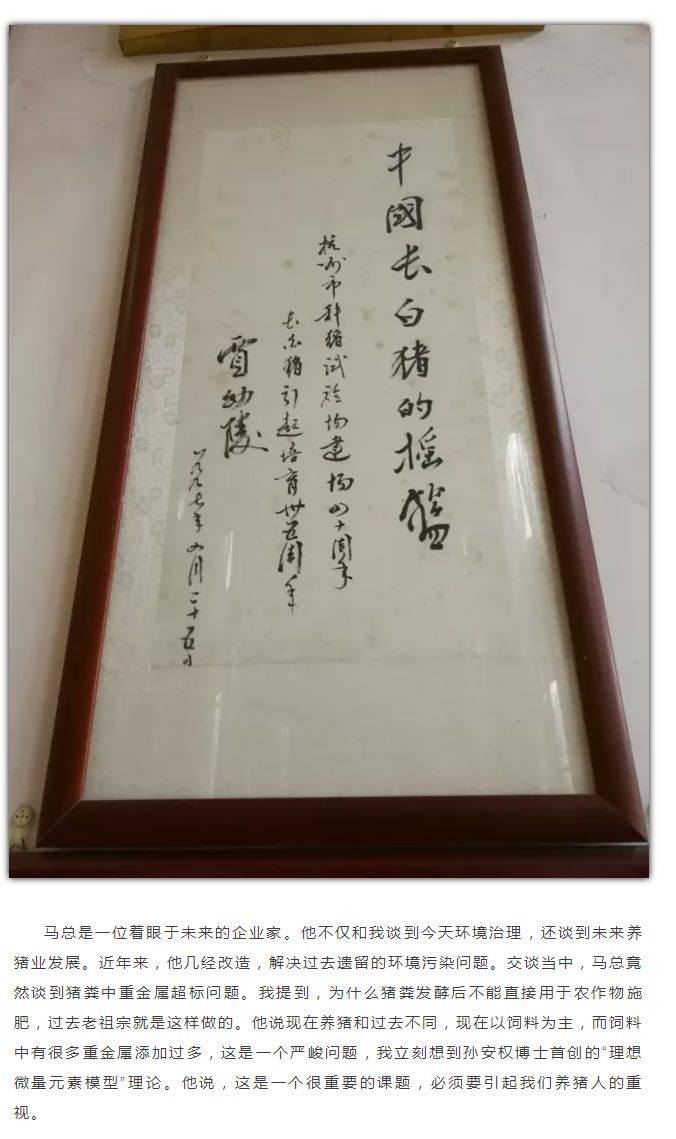 中國长白猪的摇篮
杭州市种猪试验场建场四十周年
长白猪引进培育卅五周年
贾幼陵
一九九七年 月二十五日
马总是一位着眼于未来的企业家。他不仅和我谈到今天环境治理，还谈到未来养
猪业发展。近年来，他几经改造，解决过去遗留的环境污染问题。交谈当中，马总竟
然谈到猪粪中重金属超标问题。我提到，为什么猪粪发酵后不能直接用于农作物施
肥，过去老祖宗就是这样做的。他说现在养猪和过去不同，现在以饲料为主，而饲料
中有很多重金属添加过多，这是一个严峻问题，我立刻想到孙安权博士首创的“理想
微量元素模型”理论。他说，这是一个很重要的课题，必须要引起我们养猪人的重
视。